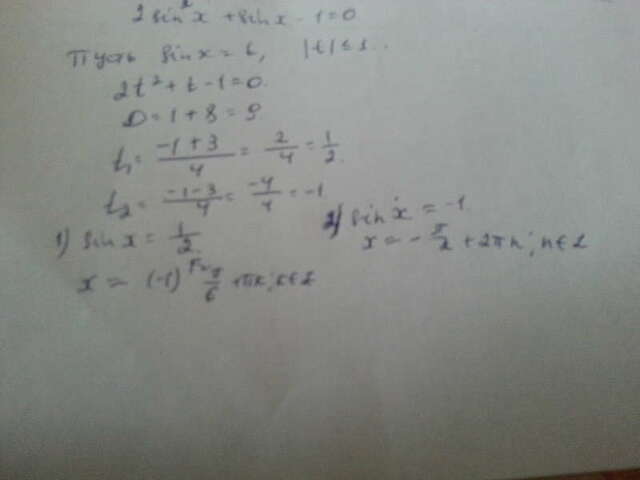 2 sin²x + sin x - 1 = 0
Пусть sin x = t, |t| ≤ 1.
2t² + t - 1 = 0.
D = 1 + 8 = 9
t₁ = (-1 + 3)/4 = 2/4 = 1/2.
t₂ = (-1 - 3)/4 = -4/4 = -1
1) sin x = 1/2
x = (-1)ᵏ π/6 + πk; k ∈ Z
2) sin x = -1
x = -π/2 + 2πn; n ∈ Z